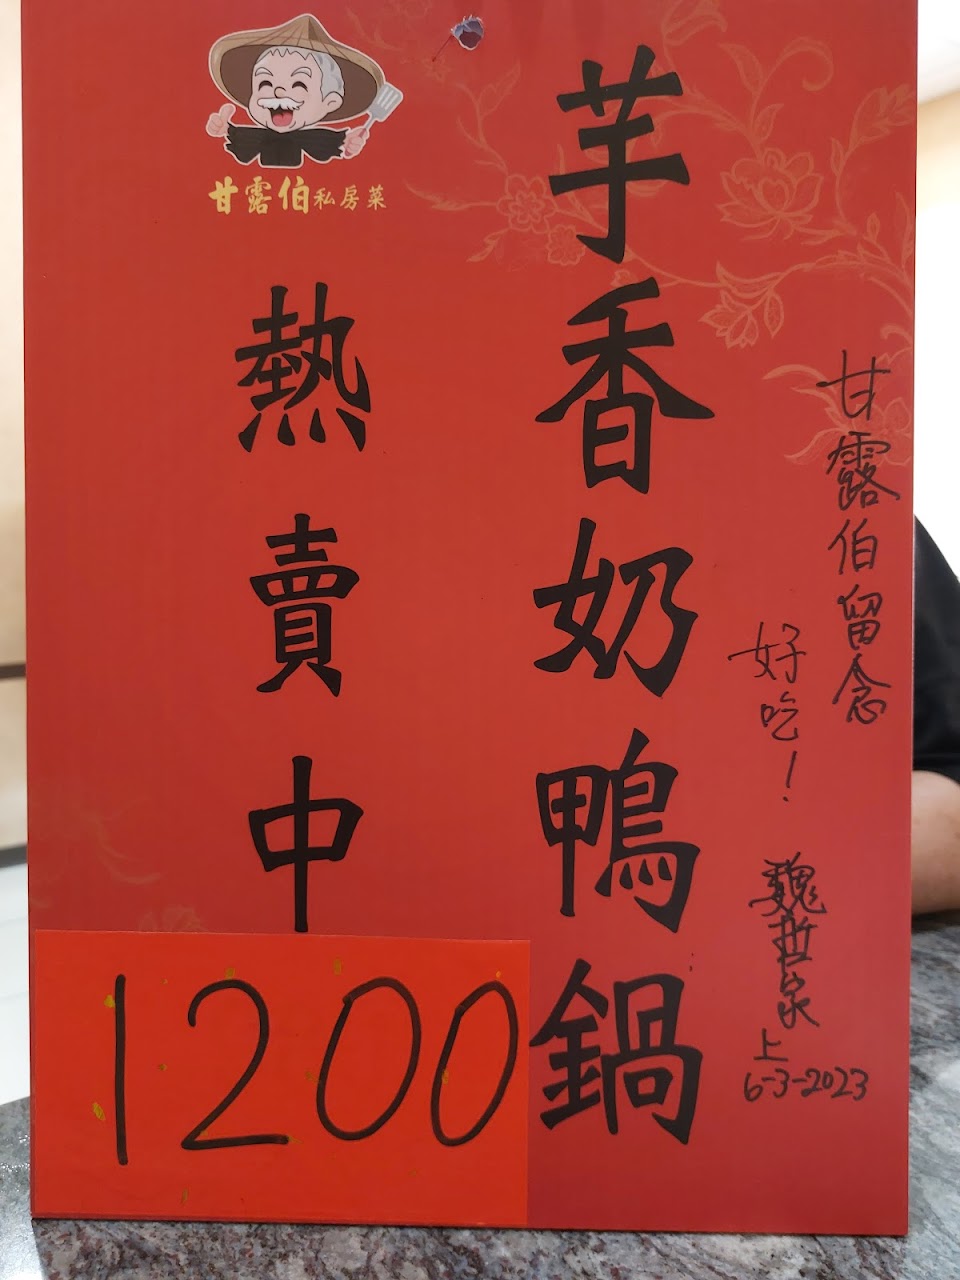 甘露伯私房菜
芋香奶鴨鍋
熱賣中
1200
甘露伯留念
好吃！
魏哲家
上
6-3-2023